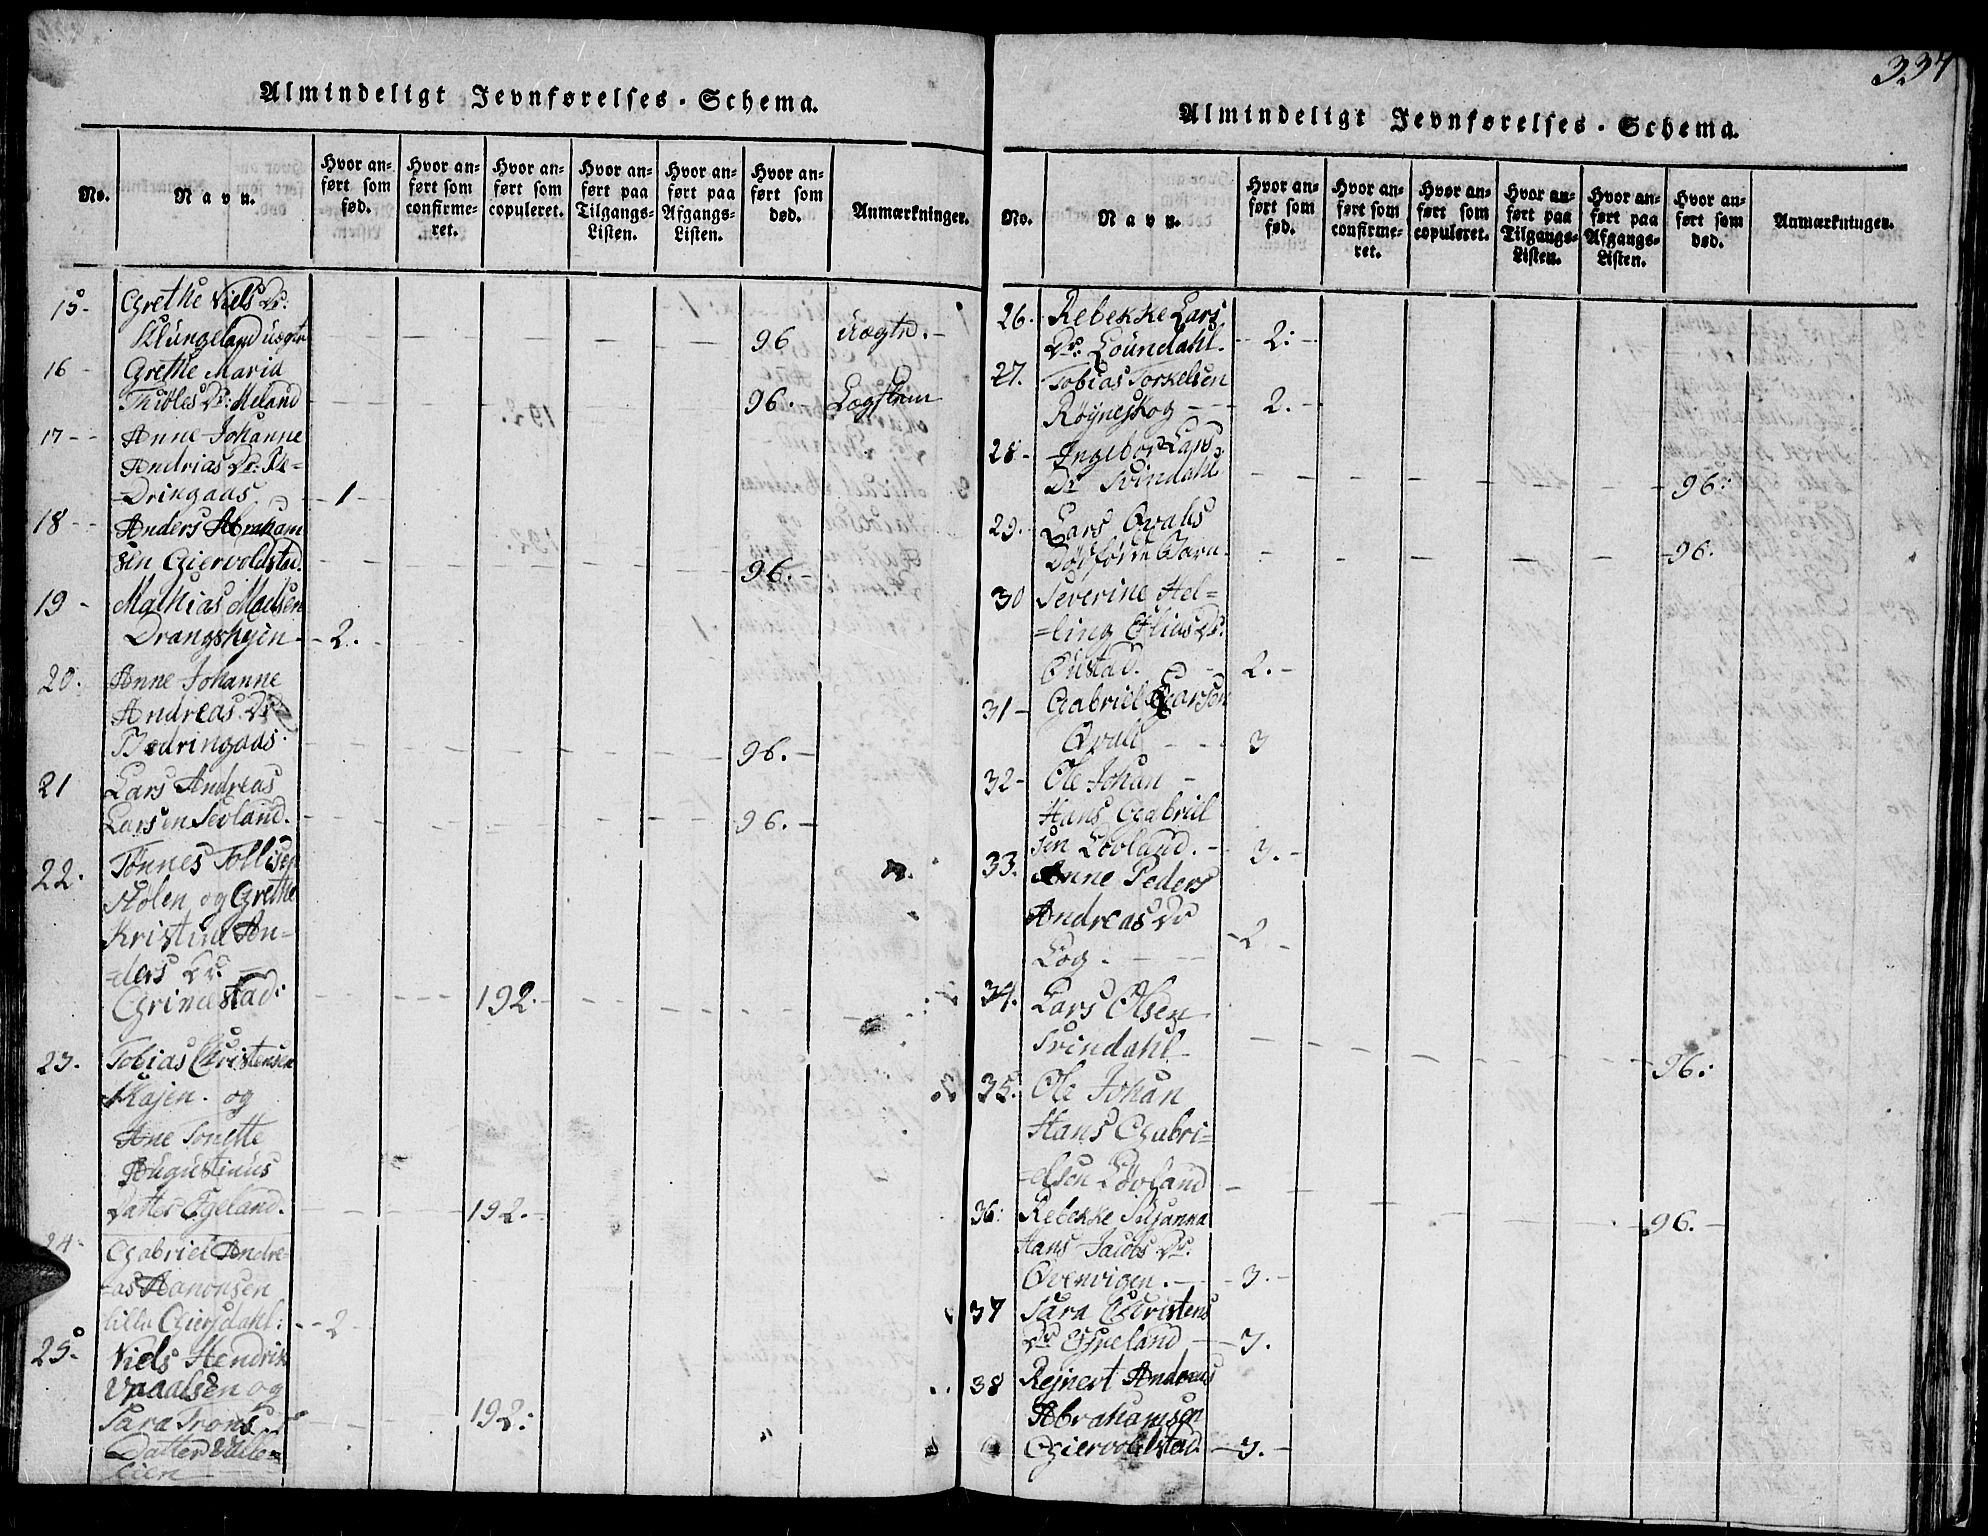 337
Almindeligt Jevnførelses-Schema.
No. Navn. Hvor anført som fød. Hvor anført som confirmeret. Hvor anført som copuleret. Hvor anført paa Tilgangs-Listen. Hvor anført paa Afgangs-Listen. Hvor anført som død. Anmærkninger.
15- Grethe Niels Dr:
Klüngeland üægte 96 üægte.-
16- Grethe Maria
Dr: Meland 96.-
17-- Anne Johanne
Andrias Dr:
-Dringaas. 1-
18-- Anders Abraham
sen Gierwoldstad. 96.-
19- Mathias Madsen
Drangshejen 2.
20. Anne Johanne
Andreas Dr
96.-
21 Lars Andreas
Larsen 96.
22. Tønnes Tollisen
Stølen og Grethe
Kristine An-
-ders Dr. -
Grimestad: 192.-
23. Tobias Christensen
og
Ane Tonette
Augustinus
Datter Egeland. 192.-
24- Gabriel Andre
-as Aanonsen
lille Giersdahl: 2-
25- Niels Hendrik
og
Sara 192:
Datter
Almindeligt Jevnførelses-Schema.
No. Navn. Hvor anført som fød. Hvor anført som confirmeret. Hvor anført som copuleret. Hvor anført paa Tilgangs-Listen. Hvor anført paa Afgangs-Listen. Hvor anført som død. Anmærkninger.
26. Rebekke Lars
Dr: Loündahl. 2:-
27. Tobias Torkelsen
Røyneskog 2.-
28- Ingebor Lars
Dr Svindahl: 96:
29. Lars Qvahs
Dødførte Barn. 96.
30 Severine Hel=
=ling Elias Dr.
Øüstad. 2.-
31- Gabriel Larsen
3
32- Ole Johan -
Hans Gabriel
sen Løvland. 3.-
33. Anne Peders
Andreas Dr
Log. -2-
34. Lars Olsen
Svindahl 96.
35. Ole Johan
Hans Gabri=
-elsen Løvland
36: Rebekke Susanna 96.-
Hans Jacobs Dr.
Qvenvigen. 3.-
37 Sara Christens
Dr 3.
38 Rejnert Andreas
Abrahamsen
Gierwoldstad 3.-